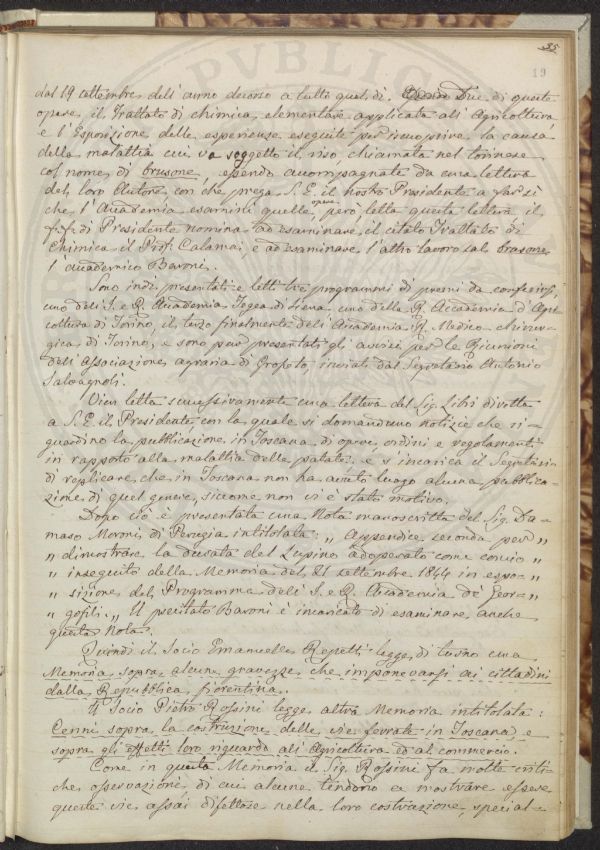 35
19
dal 19 settembre dell' anno decorso a tutto quel dì. Due di queste
opere, il Trattato di chimica elementare applicata all' Agricoltura,
e l' Esposizione delle esperienze eseguite per iscuoprire la causa
della malattia cui va soggetto il riso, chiamata nel torinese
col nome di brusone, essendo accompagnate da una lettera
del loro Autore con che prega S. E. il nostro Presidente a far sì
che l' Accademia esamini quelle opere, però letta questa lettera il
f.f. di Presidente nomina ad esaminare il citato Trattato di
Chimica il Prof. Calamai, e ad esaminare l' altro lavoro sul brusone
l' accademico Baroni.
Sono indi presentati e letti tre programmi di premi da conferirsi,
uno dell' I. e R. Accademia Tegea di Siena, uno della R. Accademia d' Agri
coltura di Torino, il terzo finalmente dell' Accademia R. Medico-chirur-
gica di Torino, e sono pure presentati gli avvisi per le Riunioni
dell' Associazione agraria di Grosseto, inviati dal Segretario Antonio
Salvagnoli.
Vien letta successivamente una lettera del Sig. Libri diretta
a S. E. il Presidente con la quale si domandano notizie che ri-
guardino la pubblicazione in Toscana di opere, ordini e regolamenti
in rapporto alla malattia delle patate: e s' incarica il Segretario
di replicare che in Toscana non ha avuto luogo alcuna pubblica-
zione di quel genere, siccome non vi è stato motivo.
Dopo ciò è presentata una Nota manoscritta del Sig. Da-
maso Moroni di Perugia intitolata: „ Appendice seconda per „
„ dimostrare la durata del Lupino adoperato come concio „
„ inseguito della Memoria del 21 settembre 1844 in espo- „
„ sizione del Programma dell' I. e R. Accademia de' Geor- „
„ gofili. „ Il prelodato Baroni è incaricato di esaminare anche
questa Nota.
Quindi il Socio Emanuelle Repetti legge di turno una
Memoria sopra alcune gravezze che imponevansi ai cittadini
dalla Repubblica fiorentina.
Il Socio Pietro Rossini legge altra Memoria intitolata:
Cenni sopra la costruzione delle vie ferrate in Toscana e
sopra gli effetti loro riguardo all' Agricoltura ed al commercio.
Come in questa Memoria il Sig. Rossini fa molte criti-
che osservazioni di cui alcune tendono a mostrare essere
queste vie assai difettose nella loro costruzione, special-